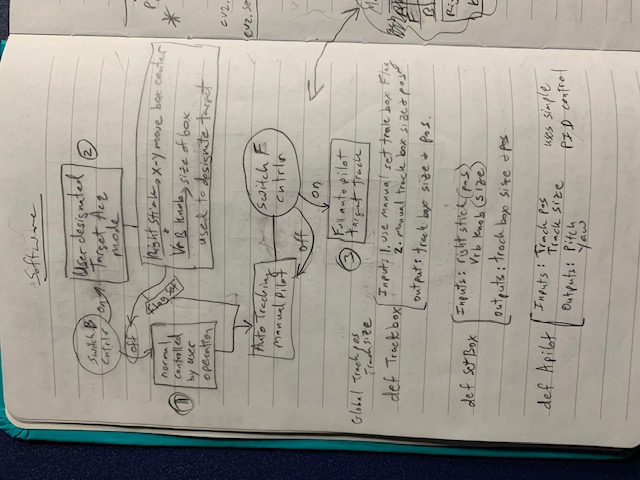 Software
Switch B
cntrlr
on
User designated
Target Acq
mode
②
off
flag set
Right Stick → X-Y move box center
VrB Knob → size of box
used to designate target
①
normal
controlled
by user
operation
Auto Tracking
Manual Pilot
Switch F
cntrlr
off
on
③
Full auto pilot
target track
Global Track pos
Track size
def Trackbox
Inputs 1. use manual set track box Flag
2. manual track box size & pos
output: track box size & pos.
def SetBox
Inputs: right stick (pos)
Vrb knob (size)
outputs: track box size & pos
def Apilot
Inputs: Track pos
Track size
Outputs: Pitch
Yaw
uses simple
PID control
P
*
cv2.
cv2. se
M
F
B
Rig